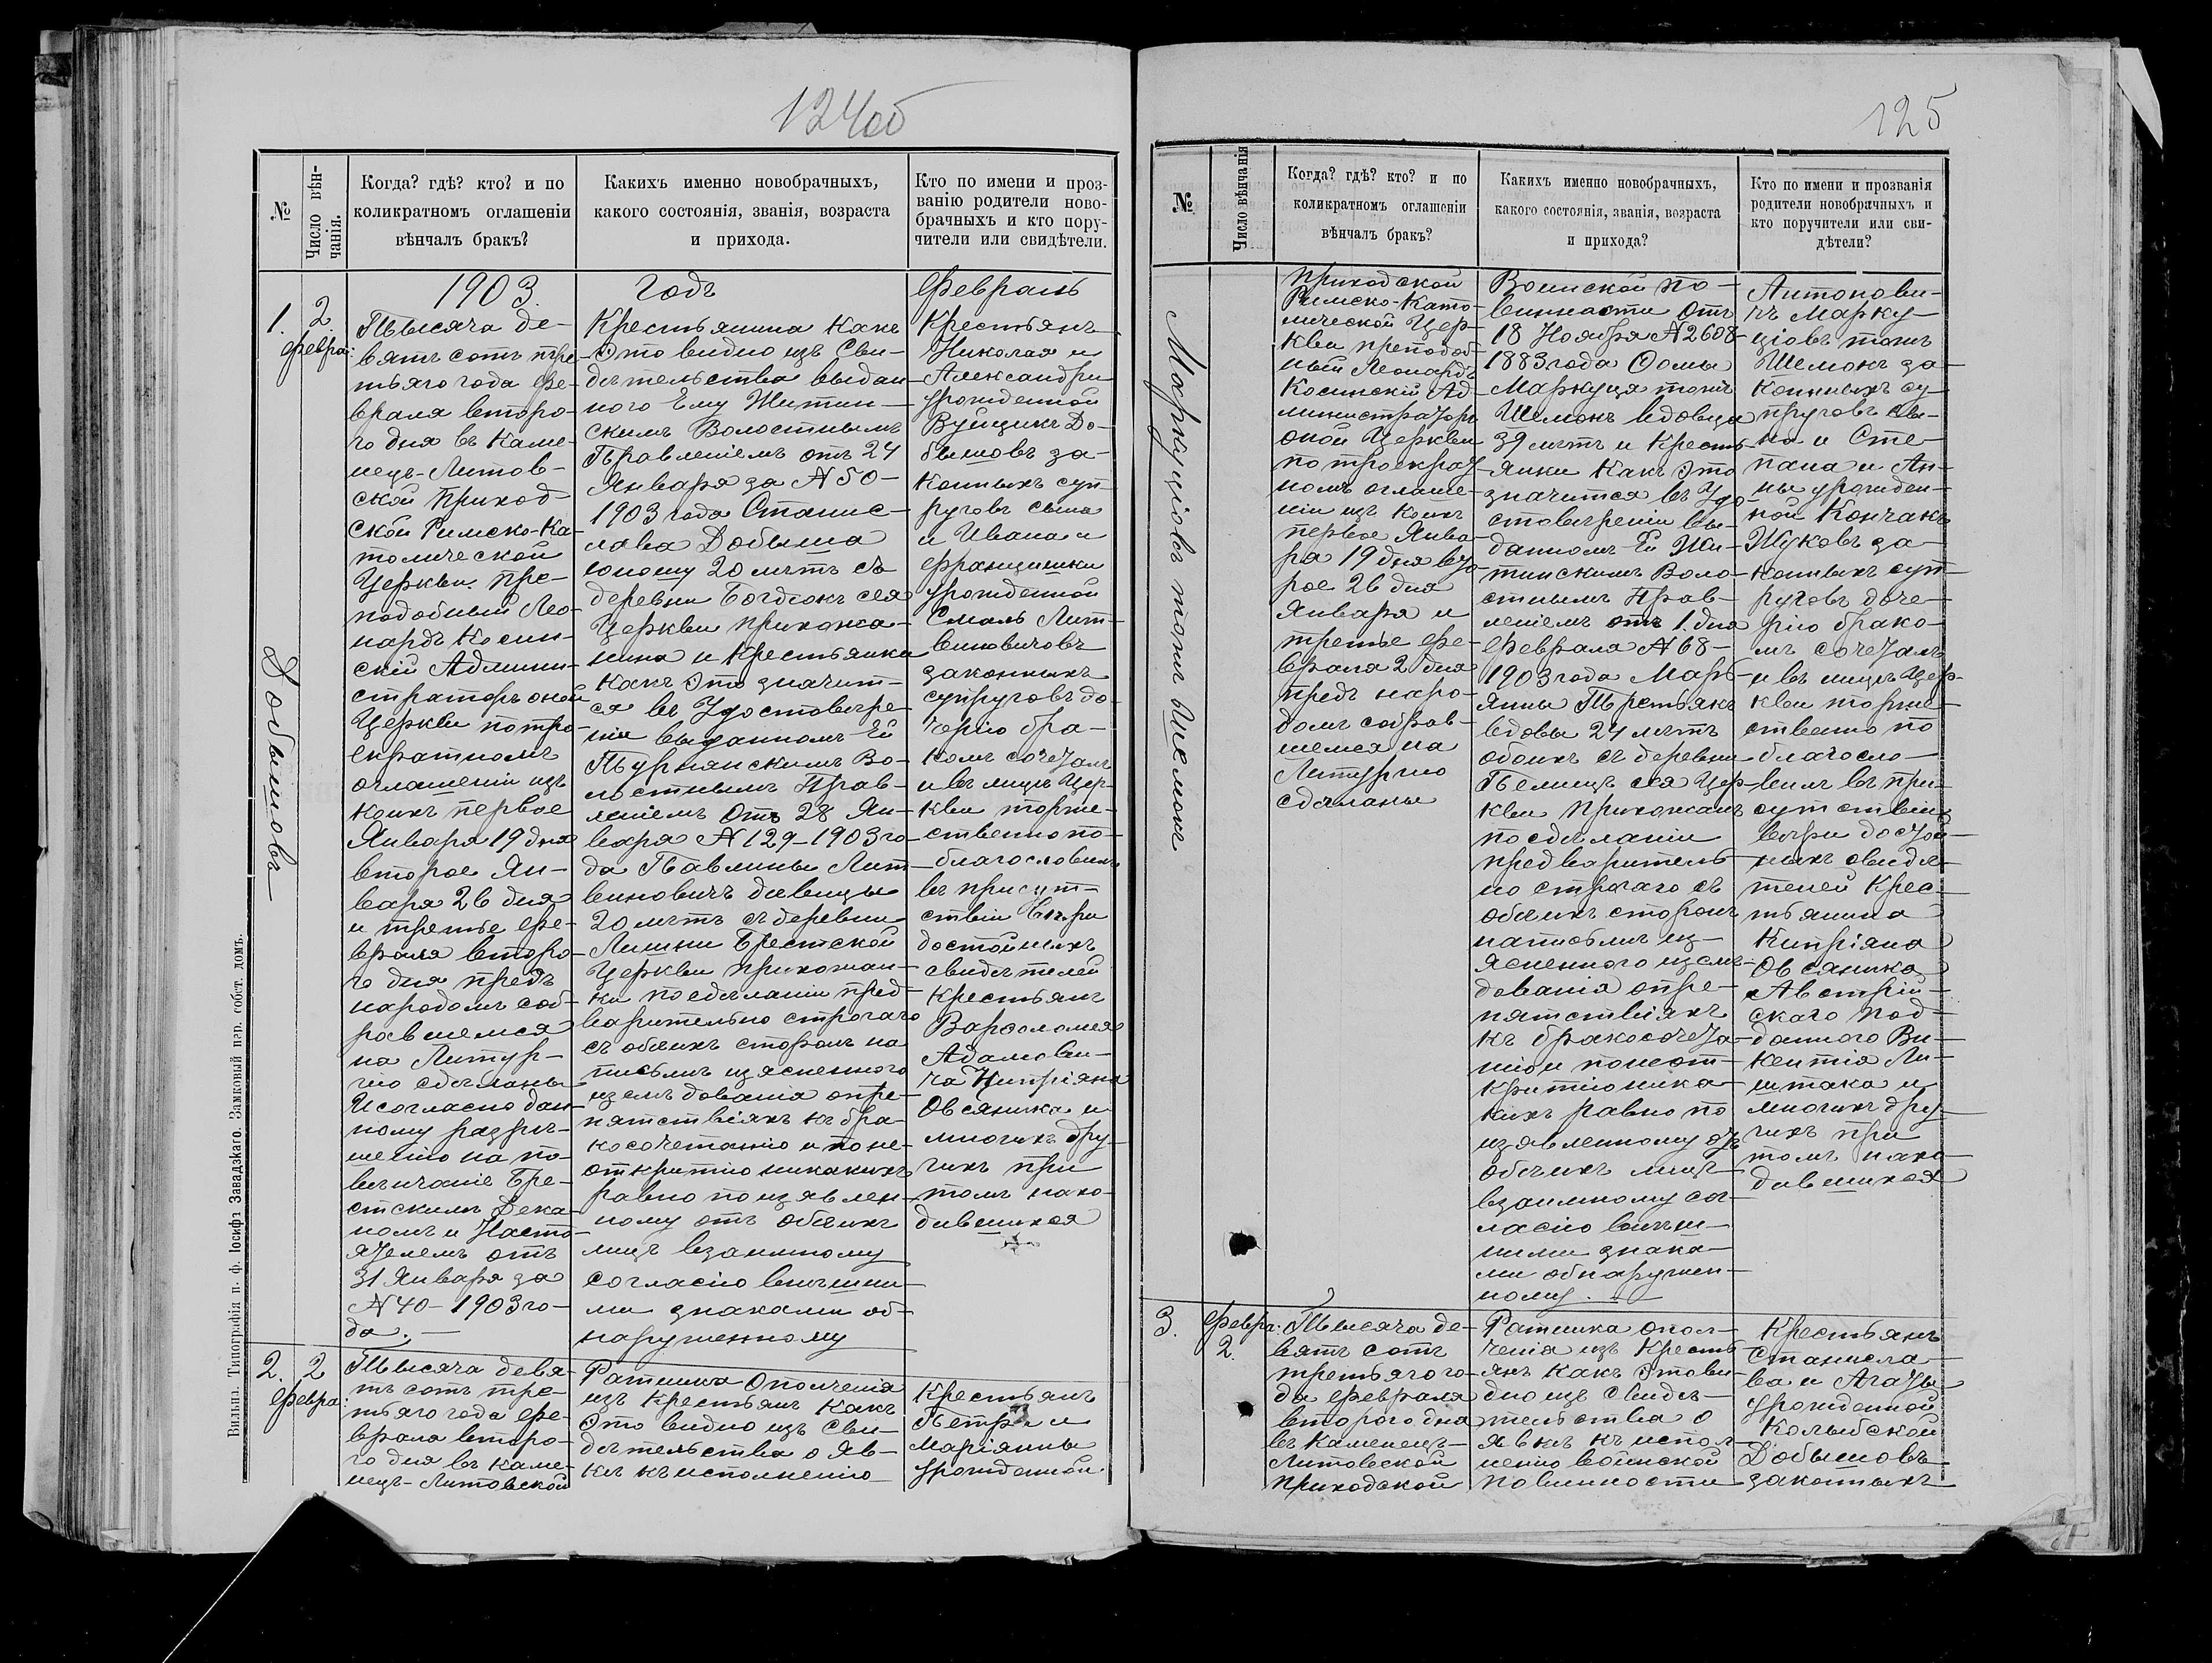 124об
№
Число вѣн-
чанія.
Когда? гдѣ? кто? и по
коликратномъ оглашеніи
вѣнчалъ бракъ?
Какихъ именно новобрачныхъ,
какого состоянія, званія, возраста
и прихода.
Кто по имени и проз-
ванію родители ново-
брачныхъ и кто пору-
чители или свидѣтели.
1903.
годъ
Февраль
1.
2
Февра:
Добышовъ
Тысяча де-
вятъ сотъ тре-
тьяго года Фе-
враля второ-
го дня въ Каме-
нецъ-Литов-
ской Приход-
ской Римско-Ка-
толической
Церкви. Пре-
подобный Лео-
нардъ Косин-
скій Админи-
страторъ оной
Церкви потро-
екратномъ
оглашеніи изъ
коихъ первое
Января 19 дня
второе Ян-
варя 26 дня
и третье Фе-
враля второ-
го дня предъ
народомъ соб-
равшемся
на Литур-
гію сдѣланы
И согласно дан-
ному разрѣ-
шенію на по-
вѣнчаніе Бре-
стскимъ Дека-
номъ и Насто-
ятелемъ отъ
31 Января за
№ 40 – 1903 го-
да. –
Крестьянина какъ
Это видно изъ Сви-
дѣтельства выдан-
ного Ему Житин-
скимъ Волостнымъ
Правленіемъ отъ 24
Января за № 50 –
1903 года Станис-
лава Добыша
юношу 20 лѣтъ съ
деревни Богдюкъ сея
Церкви прихожа-
нина и Крестьянки
какъ Это значит-
ся въ Удостовѣре-
ніи выданномъ Ей
Турнянскимъ Во-
лостнымъ Прав-
леніемъ отъ 28 Ян-
варя № 129 – 1903 го-
да Павлины Лит-
виновичъ дѣвицы
20 лѣтъ съ деревни
Лишни Брестской
Церкви прихожан-
ки посдѣланіи пред-
варительно строгаго
съ обѣихъ сторонъ на
письмѣ изясненного
изслѣдованія опре-
пятствіяхъ къ бра-
косочетанію и поне-
открытію никакихъ
равно поизявлен-
ному отъ обѣихъ
лицъ взаимному
согласію внѣшни-
ми знаками об-
наруженному
Крестьянъ
Николая и
Александры
урожденной
Вуйцикъ До-
бышовъ за-
конныхъ суп-
руговъ сына
и Ивана и
Францишки
урожденной
Смаль Лит-
виновичовъ
законныхъ
супруговъ до-
черію бра-
комъ сочеталъ
и въ лицѣ Цер-
кви торже-
ственно по-
благословилъ
въ присут-
ствіи Вѣры
достойныхъ
свидѣтелей
Крестьянъ
Варѳоломея
Адамови-
ча Кипріяна
Овсяника и
многихъ дру-
гихъ при
томъ нахо-
дившихся
2.
2
Февра:
Тысяча девя-
тъ сотъ тре-
тьяго года Фе-
враля второ-
го дня въ Каме-
нецъ-Литовской
Ратника Ополченія
изъ Крестьянъ Какъ
Это видно изъ Сви-
дѣтельства о яв-
кѣ къ исполненію
Крестьянъ
Петра и
Маріянны
урожденной
Вильна. Типографія п. ф. Іосифъ Завадзкаго. Замковый пар. собст. домъ.
125
№
Число вѣнчанія
Когда? гдѣ? кто? и по
коликратномъ оглашеніи
вѣнчалъ бракъ?
Какихъ именно новобрачныхъ,
какого состоянія, званія, возраста
и прихода?
Кто по имени и прозванія
родители новобрачныхъ и
кто поручители или сви-
дѣтели?
Маркуціовъ тожъ Шемокъ
приходской
Римско-Като-
лической Цер-
кви преподоб-
ный Леонардъ
Косинскій Ад-
министраторъ
оной Церкви
по троекрат-
номъ оглаше-
ніи изъ коихъ
первое Янва-
ря 19 дня вто-
рое 26 дня
Января и
третье Фе-
враля 2 дня
предъ наро-
домъ собрав-
шемся на
Литургію
сдѣланы
Воинской по-
винности отъ
18 Ноября № 2608
1883 года Ѳомы
Маркуця тожъ
Шемокъ вдовца
39 лѣтъ и Кресть-
янки Какъ Это
значится въ Удо-
стовѣреніи вы-
данномъ Ей Жи-
тинскимъ Воло-
стнымъ Прав-
леніемъ отъ 1 дня
Февраля № 68 –
1903 года Марь-
янны Третьякъ
вдовы 24 лѣтъ
обоихъ съ деревни
Пелищъ сея Цер-
кви Прихожанъ
посдѣланіи
предваритель-
но строгаго съ
обѣихъ сторонъ
написьмѣ из-
ясненного изслѣ-
дованія опре-
пятствіяхъ
къ бракосочета-
нію и понеот-
крытію ника-
кихъ равно по
изявленному отъ
обѣихъ лицъ
взаимному сог-
ласію внѣшн-
ними знака-
ми обнаружен-
ному. –
Антонови-
чъ Марку-
ціовъ тожъ
Шемокъ за-
конныхъ су-
пруговъ сы-
на и Сте-
пана и Ан-
ны урожден-
ной Кончакъ
Жуковъ за-
конныхъ суп-
руговъ доче-
рію брако-
мъ сочеталъ
и въ лицѣ Цер-
кви торже-
ственно по
благосло-
вилъ въ при-
сутствіи
вѣры достой-
ныхъ свидѣ-
телей Крес-
тьянина
Кипріяна
Овсяника
Австрій-
скаго под-
данного Ви-
кентія Ли-
штака и
многихъ дру-
гихъ при
томъ нахо-
дившихся
3.
Февра:
2.
Тысяча де-
вятъ сотъ
третьяго го-
да Февраля
второго дня
въ Каменецъ-
Литовской
приходской
Ратника опол-
ченія изъ Кресть-
янъ Какъ Этови-
дно изъ Свидѣ-
тельства о
явкѣ къ испол-
ненію воинской
повинности
Крестьянъ
Станисла-
ва и Агаты
урожденной
Колыбской
Добышовъ
законныхъ